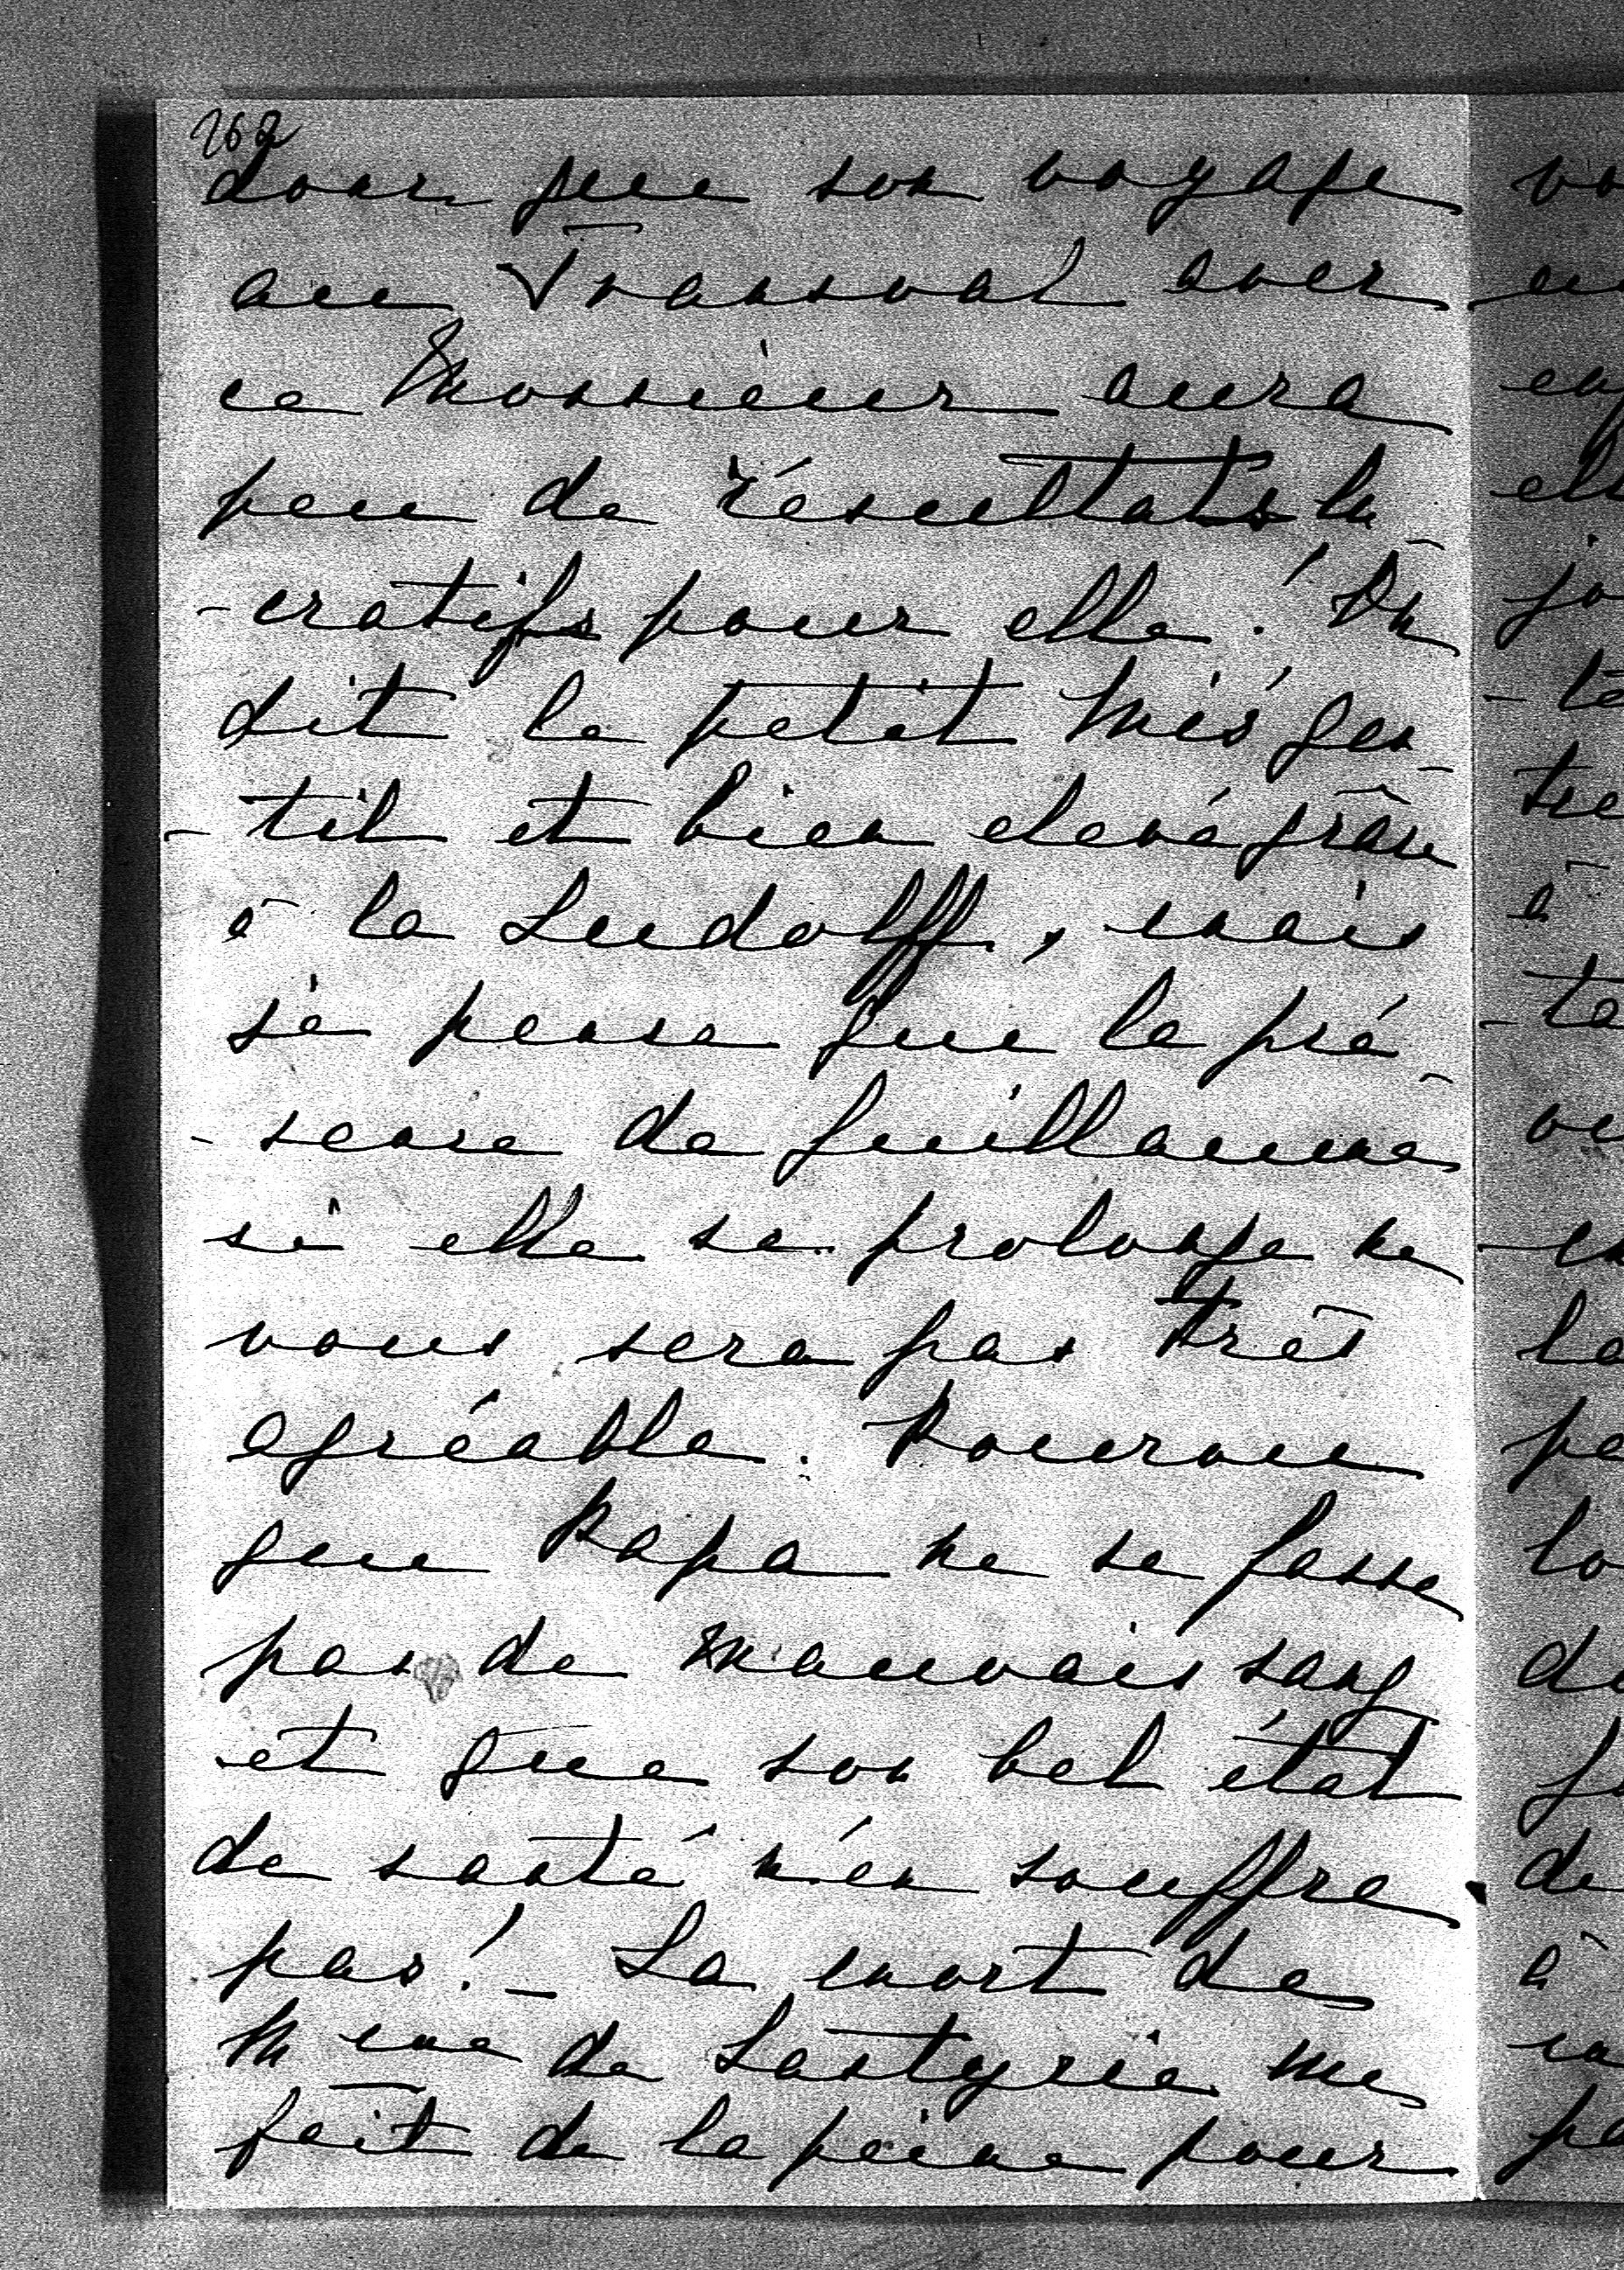 262
donc que son voyage
au Transval avec
ce Monsieur aura
peu de résultats lu
-cratifs pour elle! On
dit le petit Mis' gen
-til et bien elevé grâce
à la Ludolff, mais
je pense que la pré
-sence de Guillaume
si elle se prolonge ne
vous sera pas très
agréable. Pourvu
que Papa ne se fasse
pas de mauvais sang
et que son bel état
de santé n'en souffre
pas! - La mort de
Mme de Lastyrie me
fait de la peine pour